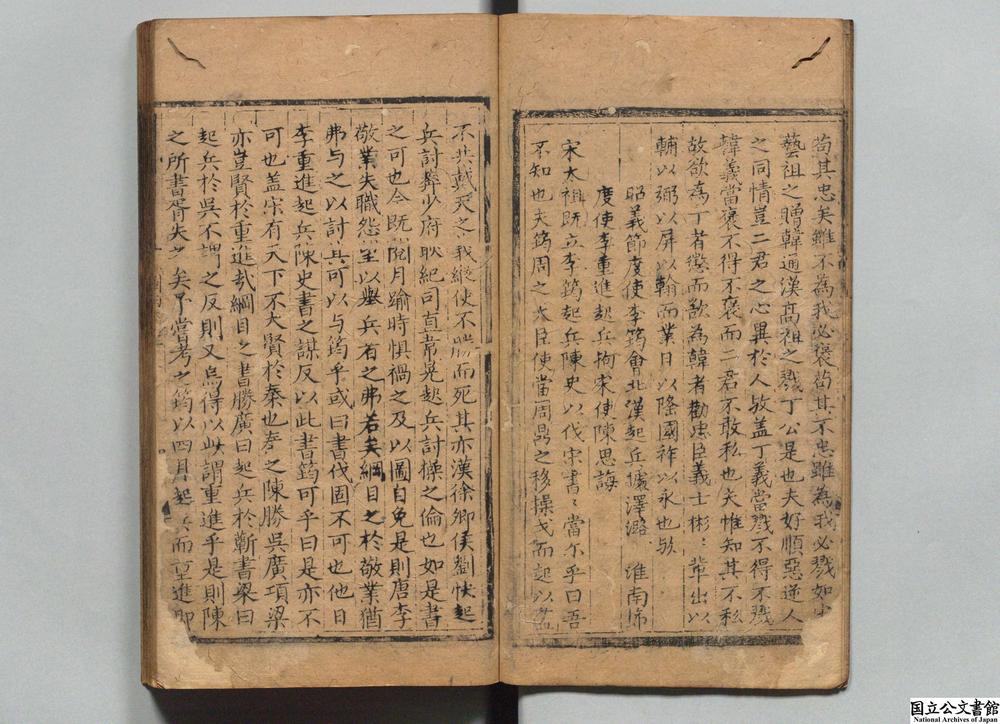 苟其忠矣雖不為我必褒苟其不忠雖為我必戮如
藝祖之贈韓通漢高祖之戮丁公是也夫好順惡逆人
之同情豈二君之心異於人哉盖丁義當戮不得不戮
韓義當褒不得不褒而二君不敢私也夫惟知其不私
故欲為丁者懲而欲為韓者勸忠臣義士彬彬輩出以
輔以弼以屏以翰而業日以隆國祚以永也哉
昭義節度使李筠會北漢起兵據澤潞 淮南節
度使李重進起兵拘宋使陳思誨
宋太祖既立李筠起兵陳史以伐宋書 當尔乎曰吾
不知也夫筠周之大臣使當周鼎之移操戈而起以
不共戴天之 我縱使不勝而死其亦漢徐卿侯劉快起
兵討莽少府耿紀司直韋晃起兵討操之倫也如是書
之可也今既閱月踰時惧禍之及以圖自免是則唐李
敬業失職怨望以擧兵者之弗若矣綱目之於敬業猶
弗与之以討其可以与筠乎或曰書代固不可也他日
李重進起兵陳史書之謀反以此書筠可乎曰是亦不
可也盖宋有天下不大賢於秦也秦之陳勝吳廣項梁
亦豈賢於重進哉綱目之書勝廣曰起兵於蘄書梁曰
起兵於吳不謂之反則又烏得以此謂重進乎是則陳
之所書胥失之矣予嘗考之筠以四月起兵而重進即
国立公文書館
National Archives of Japan